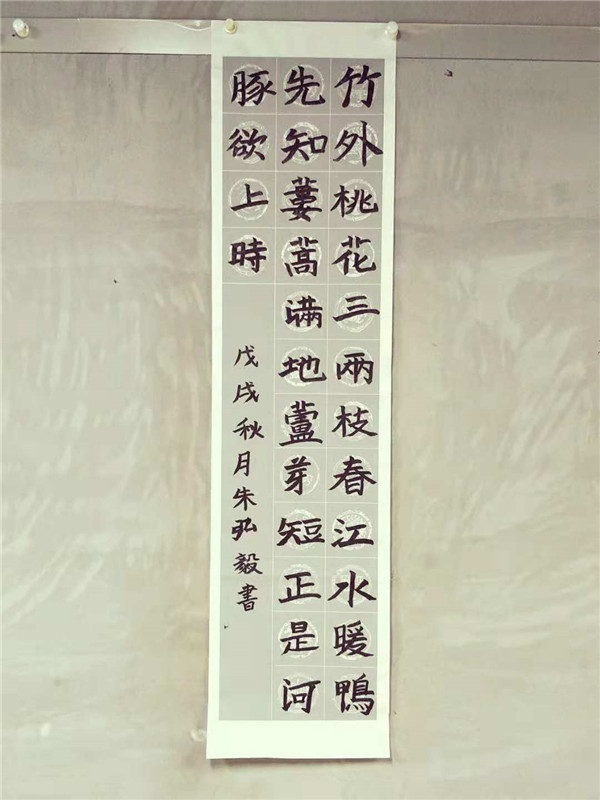 竹外桃花三兩枝春江水暖鴨
先知蔞蒿满地蘆芽短正是河
豚欲上時
戊戌秋月朱弘毅書